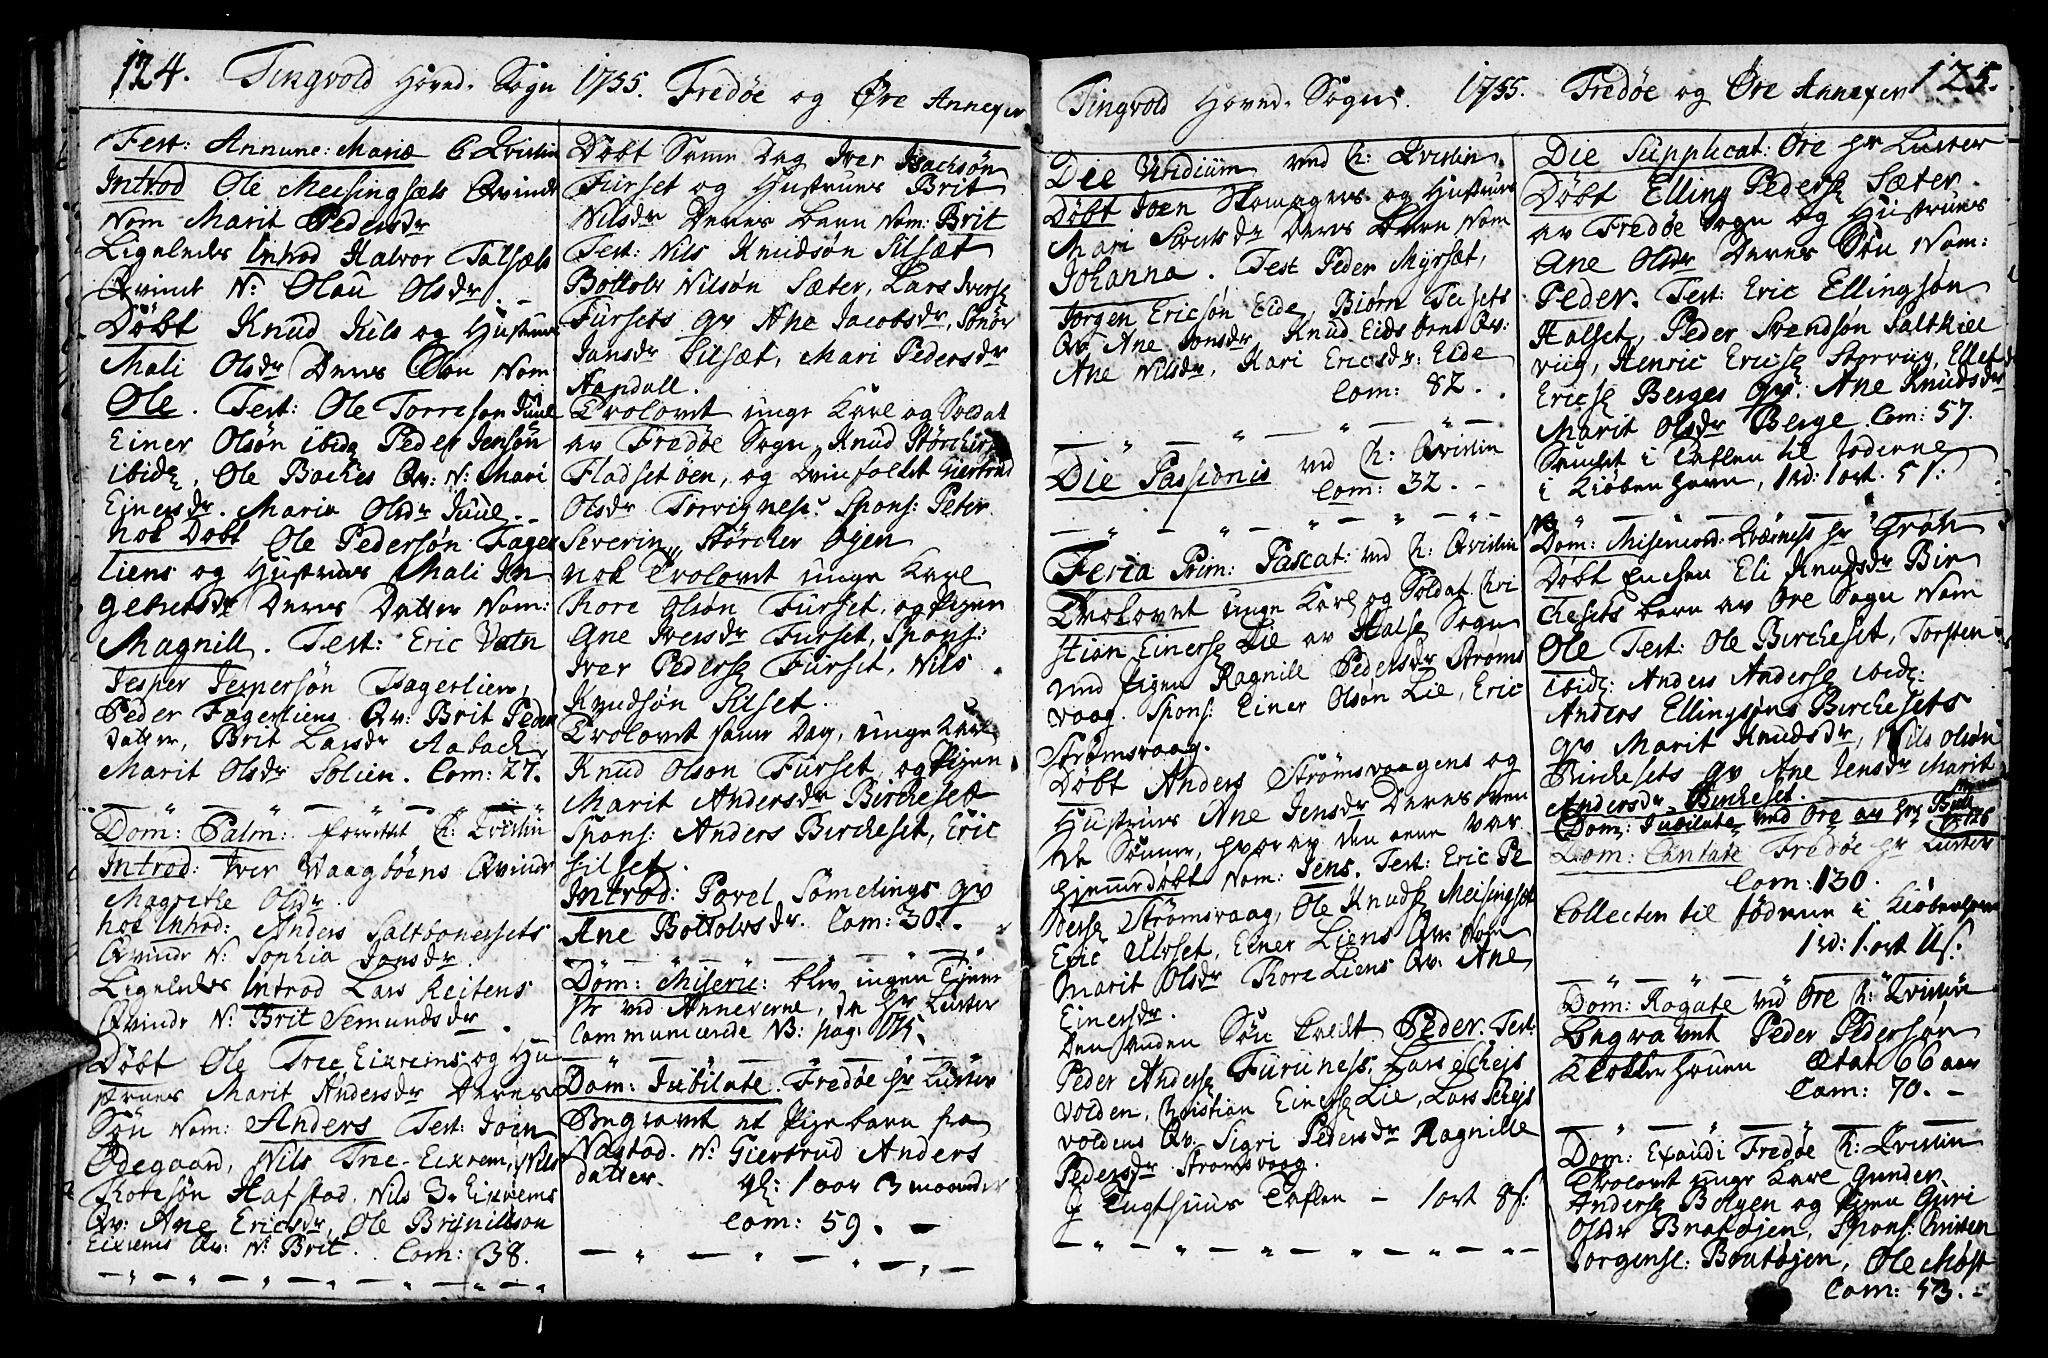 124. Tingvold Hoved-Sogn 1755. Fredøe og Øre Annexer
Fest: Annunc: Mariæ C Qvislin
Introd Ole Meisingsæts Qvinde
Nom Marit Pedersdr
Ligeledes Introd Halvor Talsæts
Qvinde N: Olau Olsdr.
Døbt Knud Juls og Hustrues
Mali Olsdr Deres Søn Nom
Ole. Test: Ole Torresøn Juul
Einer Olsøn ibid Peder Jensøn
ibid, Ole Baches Qv: N: Mari
Einersdr. Marie Olsdr Juul.
nok Døbt Ole Pedersøn Fager
liens og Hustrues Mali In
gebretsdr Deres Datter Nom:
Magnill. Test: Eric Vatn
Jesper Jespersøn Fagerlien,
Peder Fagerliens Qv: Brit Peders
datter, Brit Larsdr Aabach,
Marit Olsdr Solien. Com: 27.
Dom: Palm: forrettet C: Qvislin
Introd: Iver Waagbøens Qvinde
Magrethe Olsdr.
nok Introd: Anders Saltbonersets
Qvinde N: Sophia Jonsdr.
Ligeledes Introd Lars Reitens
Qvinde N: Brit Semundsdr.
Døbt Ole Tree Eixrems og Hu
strues Marit Andersdr Deres
Søn Nom: Anders Test: Joen
Ødegaard, Nils Tree-Eixrem, Nils
Toresøn Hafstad, Nils 3. Eixrems
Qv: Ane Ericsdr, Ole Brynillson
Eixrems Qv: N: Brit. Com: 38.
Døbt Samme Dag Iver Isachsøn
Furset og Hustrues Brit
Nilsdr Deres barn Nom: Brit
Test: Nils Knudsøn Silsæt
Bottolv Nilsøn Sæter, Lars Iverse
Fursets qv Ane Jacobsdr, Synør
Jansdr Silsæt, Mari Pedersdr
Aandall.
Trolovet unge Karl og Soldat
av Fredøe Sogn Knud Størchers
Fladsetøen, og Qvinfolket Giertrud
Olsdr Torvignes. Spons: Peter
Severin Størcher Øyen
nok Trolovet unge Karl
Tore Olsøn Furset, og Pigen
Ane Iversdr Furset, Spons:
Iver Pederse Furset, Nils
Knudsøn Silset.
Trolovet samme Dag, unge Karl
Knud Olson Furset og Pigen
Marit Andersdr Bircheset
Spons: Anders Bircheset, Eric
Silset.
Introd: Povel Sømelings qv
Ane Bottolvsdr. Com: 30.
Dom: Miseric: blev ingen Tjene
ste ved Annexerne, da hr Luster
Communicerede NB: pag: 175.
Dom: Jubilate. Fredøe hr Luster
Begravet et Pigebarn fra
Nastad. N: Giertrud Anders
datter. gl: 1 aar 3 maaneder
Com: 59.
Tingvold Hoved-Sogn. 1755. Fredøe og Øre Annexer 125.
Die Viridium ved C: Qvislin.
Døbt Joen Skomagers og Hustrues
Mari Sivertsdr Deres barn Nom
Johanna. Test Peder Myrsæt,
Jørgen Ericsøn Eide, Biørn Teisets
Qv Ane Jonsdr, Knud Eids Ørnt Qv:
Ane Nilsdr, Kari Ericsdr: Eide
Com: 82.
Die Passionis ved C: Qvislin
Com: 32.
Feria Prim: Pascat: ved C: Qvislin
Trolovet unge Karl og Soldat Chri
stian Einerse Lie av Halse Sogn
med Pigen Ragnill Pedersdr Strøms
vaag. Spons: Einer Olson Lie, Eric
Strømsvaag.
Døbt Anders Strømsvaagens og
Hustrues Ane Jensdr Deres tven
de Sønner, hvorav den eene var
hjemmedøbt Nom: Jens. Test: Eric Pe
derse Strømsvaag, Ole Knudse Meisingset
Eric Ulvset, Einer Liens Qv: Nom
Marit Olsdr Tore Liens Qv: Ane
Einersdr.
Den anden Søn kaldt Peder. Test:
Peder Anderse Furunes, Lars Schejs
volden, Christian Einerse Lie, Lars Schejs
voldens Qv. Sigri Pedersdr Ragnille
Pedersdr Strømsvaag.
I Tugthuus Taflen - 1 ort 8s:
Die Supplicat: Øre hr Luster
Døbt Elling Pederse Sæter
av Fredøe Sogn og Hustrues
Ane Olsdr Deres Søn Nom:
Peder. Test: Eric Ellingsøn
Halset, Peder Svendsøn Saltkiel
viig, Henric Ericse Storviig, Ellef
Ericse Berges qv: Ane Knudsdr
Marit Olsdr Berge. Com: 57.
Samlet i Taflen til Jøderne
i Kiøbenhavn, 1 rd: 1 ort. 5 s.
Dom: Misericord. Qvernes hr Grøn
Døbt Enchen Eli Knudsdr Bir
chesets barn av Øre Sogn Nom
Ole Test: Ole Bircheset, Torsten
ibid: Anders Anderse ibid:
Anders Ellingsøns Birchesets
qv Marit Knudsdr, Nils Olsøn
Birchesets qv Ane Jensdr Marit
Andersdr Bircheset.
Dom: Jubilate ved Øre av hr
Dom: Cantate Fredøe hr Luster
Com: 130.
Collecten til Jøderne i Kiøbenhavn
1 rd: 1. ort 11 s.
Dom: Rogate ved Øre C: Qvislin
Begravet Peder Pedersøn
Klockerhouen Ætat 66 aar
Com: 70.
Dom: Exaudi Fredøe C: Qvislin
Trolovet unge Karl Gunder
Anderse Bolgen og Pigen Guri
Olsdr Bratøjen, Spons: Christen
Jørgense: Bratøjen, Ole Møst
Com: 53.